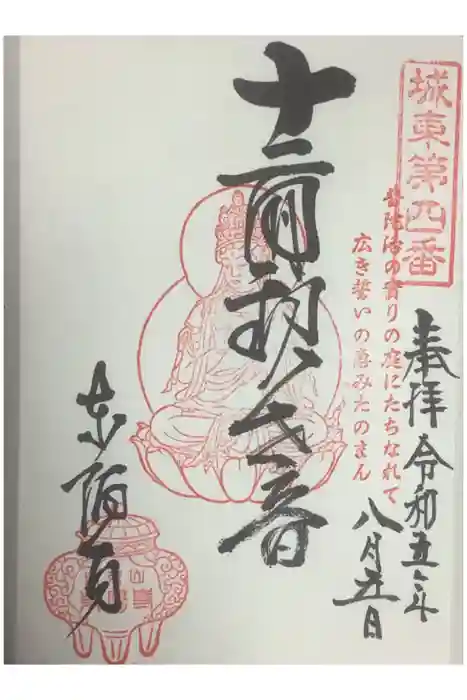 城東第四番
普陀洛の香りの庭にたちなれて
広き誓いの恵みたのまん
奉拝 令和五年
八月五日
十一面観世音